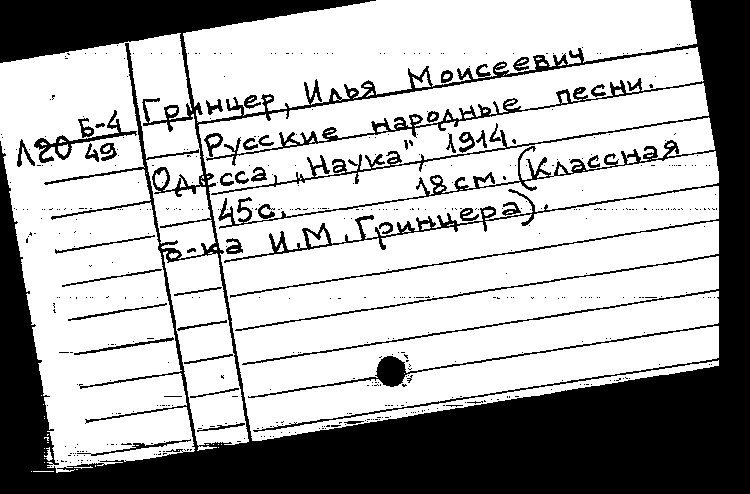 Гринцер, Илья Моисеевич
Л20 Б-4/49
Русские народные песни.
Одесса, „Наука", 1914.
45с. 18 см. (Классная
б-ка И.М.Гринцера).